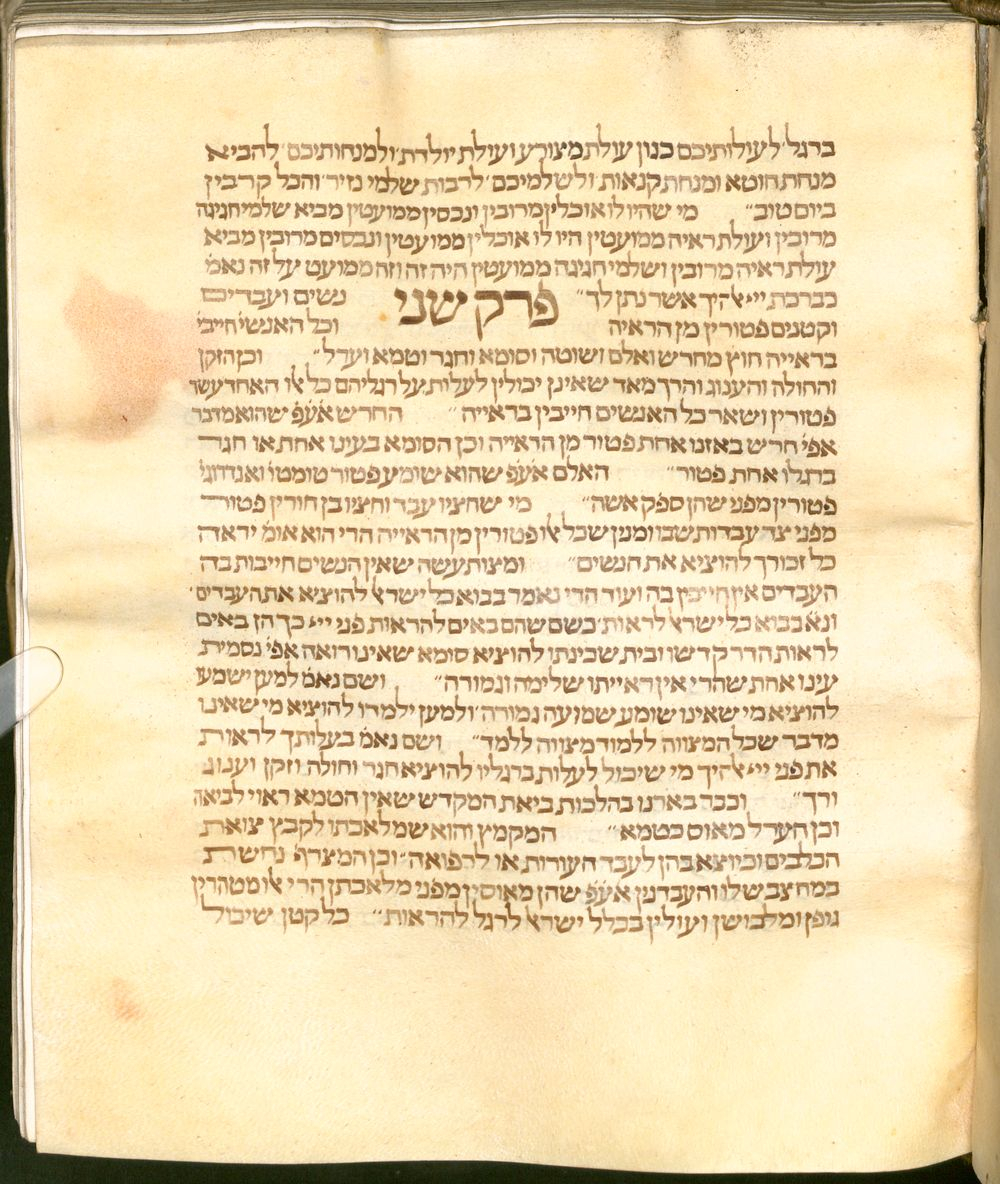 ברגל׳ לעולותיכם כגון עולת מצורע ועולת יולדת׳ ולמנחותיכם׳ להביא
מנחת חוטא ומנחת קנאות׳ ולשלמיכם׳ לרבות שלמי נזיר׳ והכל קרבין
ביום טוב״ מי שהיו לו אוכלין מרובין ונכסין ממועטין מביא שלמי חגיגה
מרובין ועולת ראיה ממועטין היו לו אוכלין ממועטין ונכסים מרובין מביא
עולת ראיה מרובין ושלמי חגיגה ממועטין היה זה וזה ממועט על זה נאמ׳
כברכת ייי אלהיך אשר נתן לך״ פרק שני נשים ועבדים
וקטנים פטורין מן הראיה וכל האנשי׳ חייבי׳
בראייה חוץ מחרש ואלם ושוטה וסומא וחגר וטמא וערל״ וכן הזקן
והחולה והענוג והרך מאד שאינן יכולין לעלות על רגליהם כל אלו האחד עשר
פטורין ושאר כל האנשים חייבין בראייה״ החרש אע״פ שהוא מדבר
אפי׳ חרש באזנו אחת פטור מן הראייה וכן הסומא בעינו אחת או חגר
ברגלו אחת פטור״ האלם אע״פ שהוא שומע פטור טומטו׳ ואנדרוגי׳
פטורין מפני שהן ספק אשה״ מי שחציו עבד וחציו בן חורין פטור
מפני צד עבדות שבו ומנין שכל אלו פטורין מן הראייה הרי הוא אומ׳ יראה
כל זכורך להוציא את הנשים״ ומצות עשה שאין הנשים חייבות בה
העבדים אין חייבין בה ועוד הרי נאמר בבוא כל ישראל להוציא את העבדים׳
ונא׳ בבוא כל ישראל לראות׳ כשם שהם באים להראות פני ייי כך הן באים
לראות הדר קדשו ובית שכינתו להוציא סומא שאינו רואה אפי׳ נסמית
עינו אחת שהרי אין ראייתו שלימה וגמורה״ ושם נאמ׳ למען ישמעו
להוציא מי שאינו שומע שמועה גמורה׳ ולמען ילמדו להוציא מי שאינו
מדבר שכל המצווה ללמוד מצווה ללמד״ ושם נאמ׳ בעלותך לראות
את פני ייי אלהיך מי שיכול לעלות ברגליו להוציא חגר וחולה וזקן וענוג
ורך״ וכבר בארנו בהלכות ביאת המקדש שאין הטמא ראוי לביאה
וכן הערל מאוס כטמא״ המקמץ והוא שמלאכתו לקבץ צואת
הכלבים וכיוצא בהן לעבד העורות או לרפואה״ וכן המצרף נחשת
במחצב שלו והעבדנין אע״פ שהן מאוסין מפני מלאכתן הרי אלו מטהרין
גופן ומלבושן ועולין בכלל ישראל לרגל להראות״ כל קטן שיכול